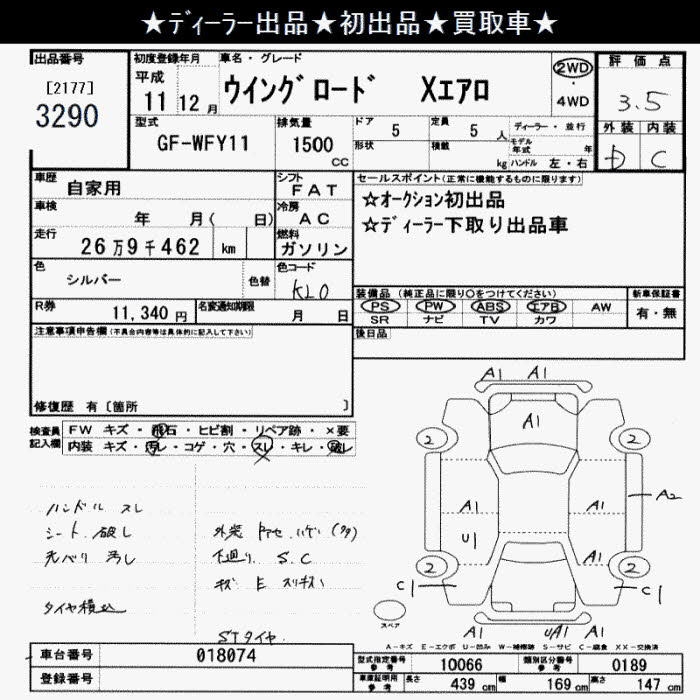 ★ディーラー出品★初出品★買取車★
出品番号
[2177]
3290
初度登録年月
平成
11 12 月
車名・グレード
ウイングロード Xエアロ
2WD
・
4WD
評価点
3.5
外装 内装
D C
型式
GF-WFY11
排気量
1500
CC
ドア 5
形状
定員 5 人
積載 kg
ディーラー・並行
モデル年式 年
ハンドル 左・右
車歴 自家用
車検 年 月( 日)
走行 26万9千462 km
色 シルバー 色替
シフト FAT
冷房 AC
燃料 ガソリン
色コード KL0
セールスポイント(正常に機能するものに限ります)
☆オークション初出品
☆ディーラー下取り出品車
R券 11,340 円
名変通知期限 月 日
装備品 (純正品に限り○をつけてください)
PS PW ABS エアB AW
SR ナビ TV カワ
新車保証書
有・無
後日品
注意事項申告欄(不具合内容等は具体的に記入して下さい)
修復歴 有〔箇所 〕
検査員記入欄
FW キズ・飛石・ヒビ割・リペア跡・×要
内装 キズ・汚レ・コゲ・穴・スレ・キレ・破レ
ハンドル スレ
シート 破レ
天バリ 汚レ
タイヤ積込
下廻り S.C
STタイヤ
A1 A1
A1
2 2
A1 A1 A2
U1 A1
2 2
C1 C1
スペア
UA1 A1
A-キズ E-エクボ U-凹み W-補修跡 S-サビ C-腐食 XX-交換済
車台番号 018074
登録番号
型式指定番号 参考 10066
類別区分番号 参考 0189
車庫証明用 参考 長さ 439 cm 幅 169 cm 高さ 147 cm